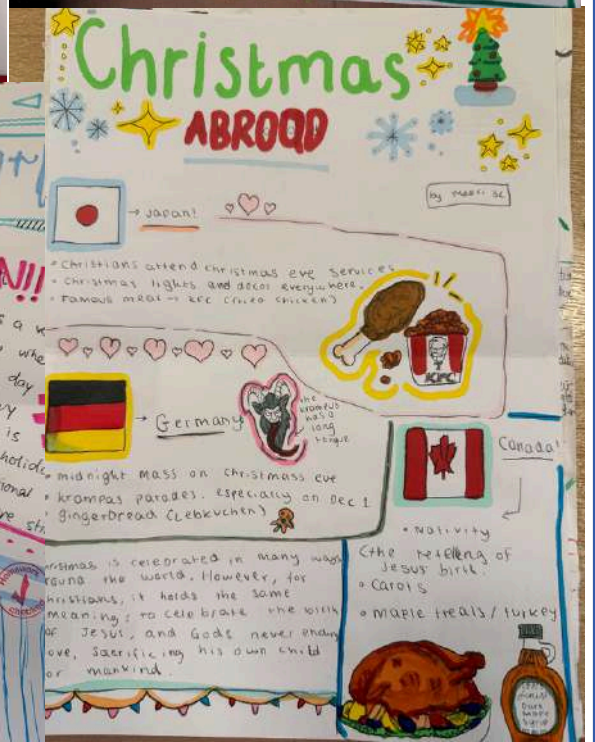 Christmas
ABROAD
by
Japan!
• Christians attend christmas eve services
• Christmas lights and decor everywhere.
• Famous meal → KFC (fried chicken)
KFC
Germany
the
krampus
has a
long
tongue
• midnight mass on christmass eve
• krampas parades. especially on Dec 1
gingerbread (Lebkuchen)
Canada!
• Nativity
(the retelling of
Jesus birth.
• Carols
• Maple treats/turkey
ristmas is celebrated in many ways
round the world. However, for
hristians, it holds the same
meaning: to celebrate the birth
of Jesus, and Gods never endin
ove, sacrificing his own child
or mankind.
Dark
maple
Syrup
day
is